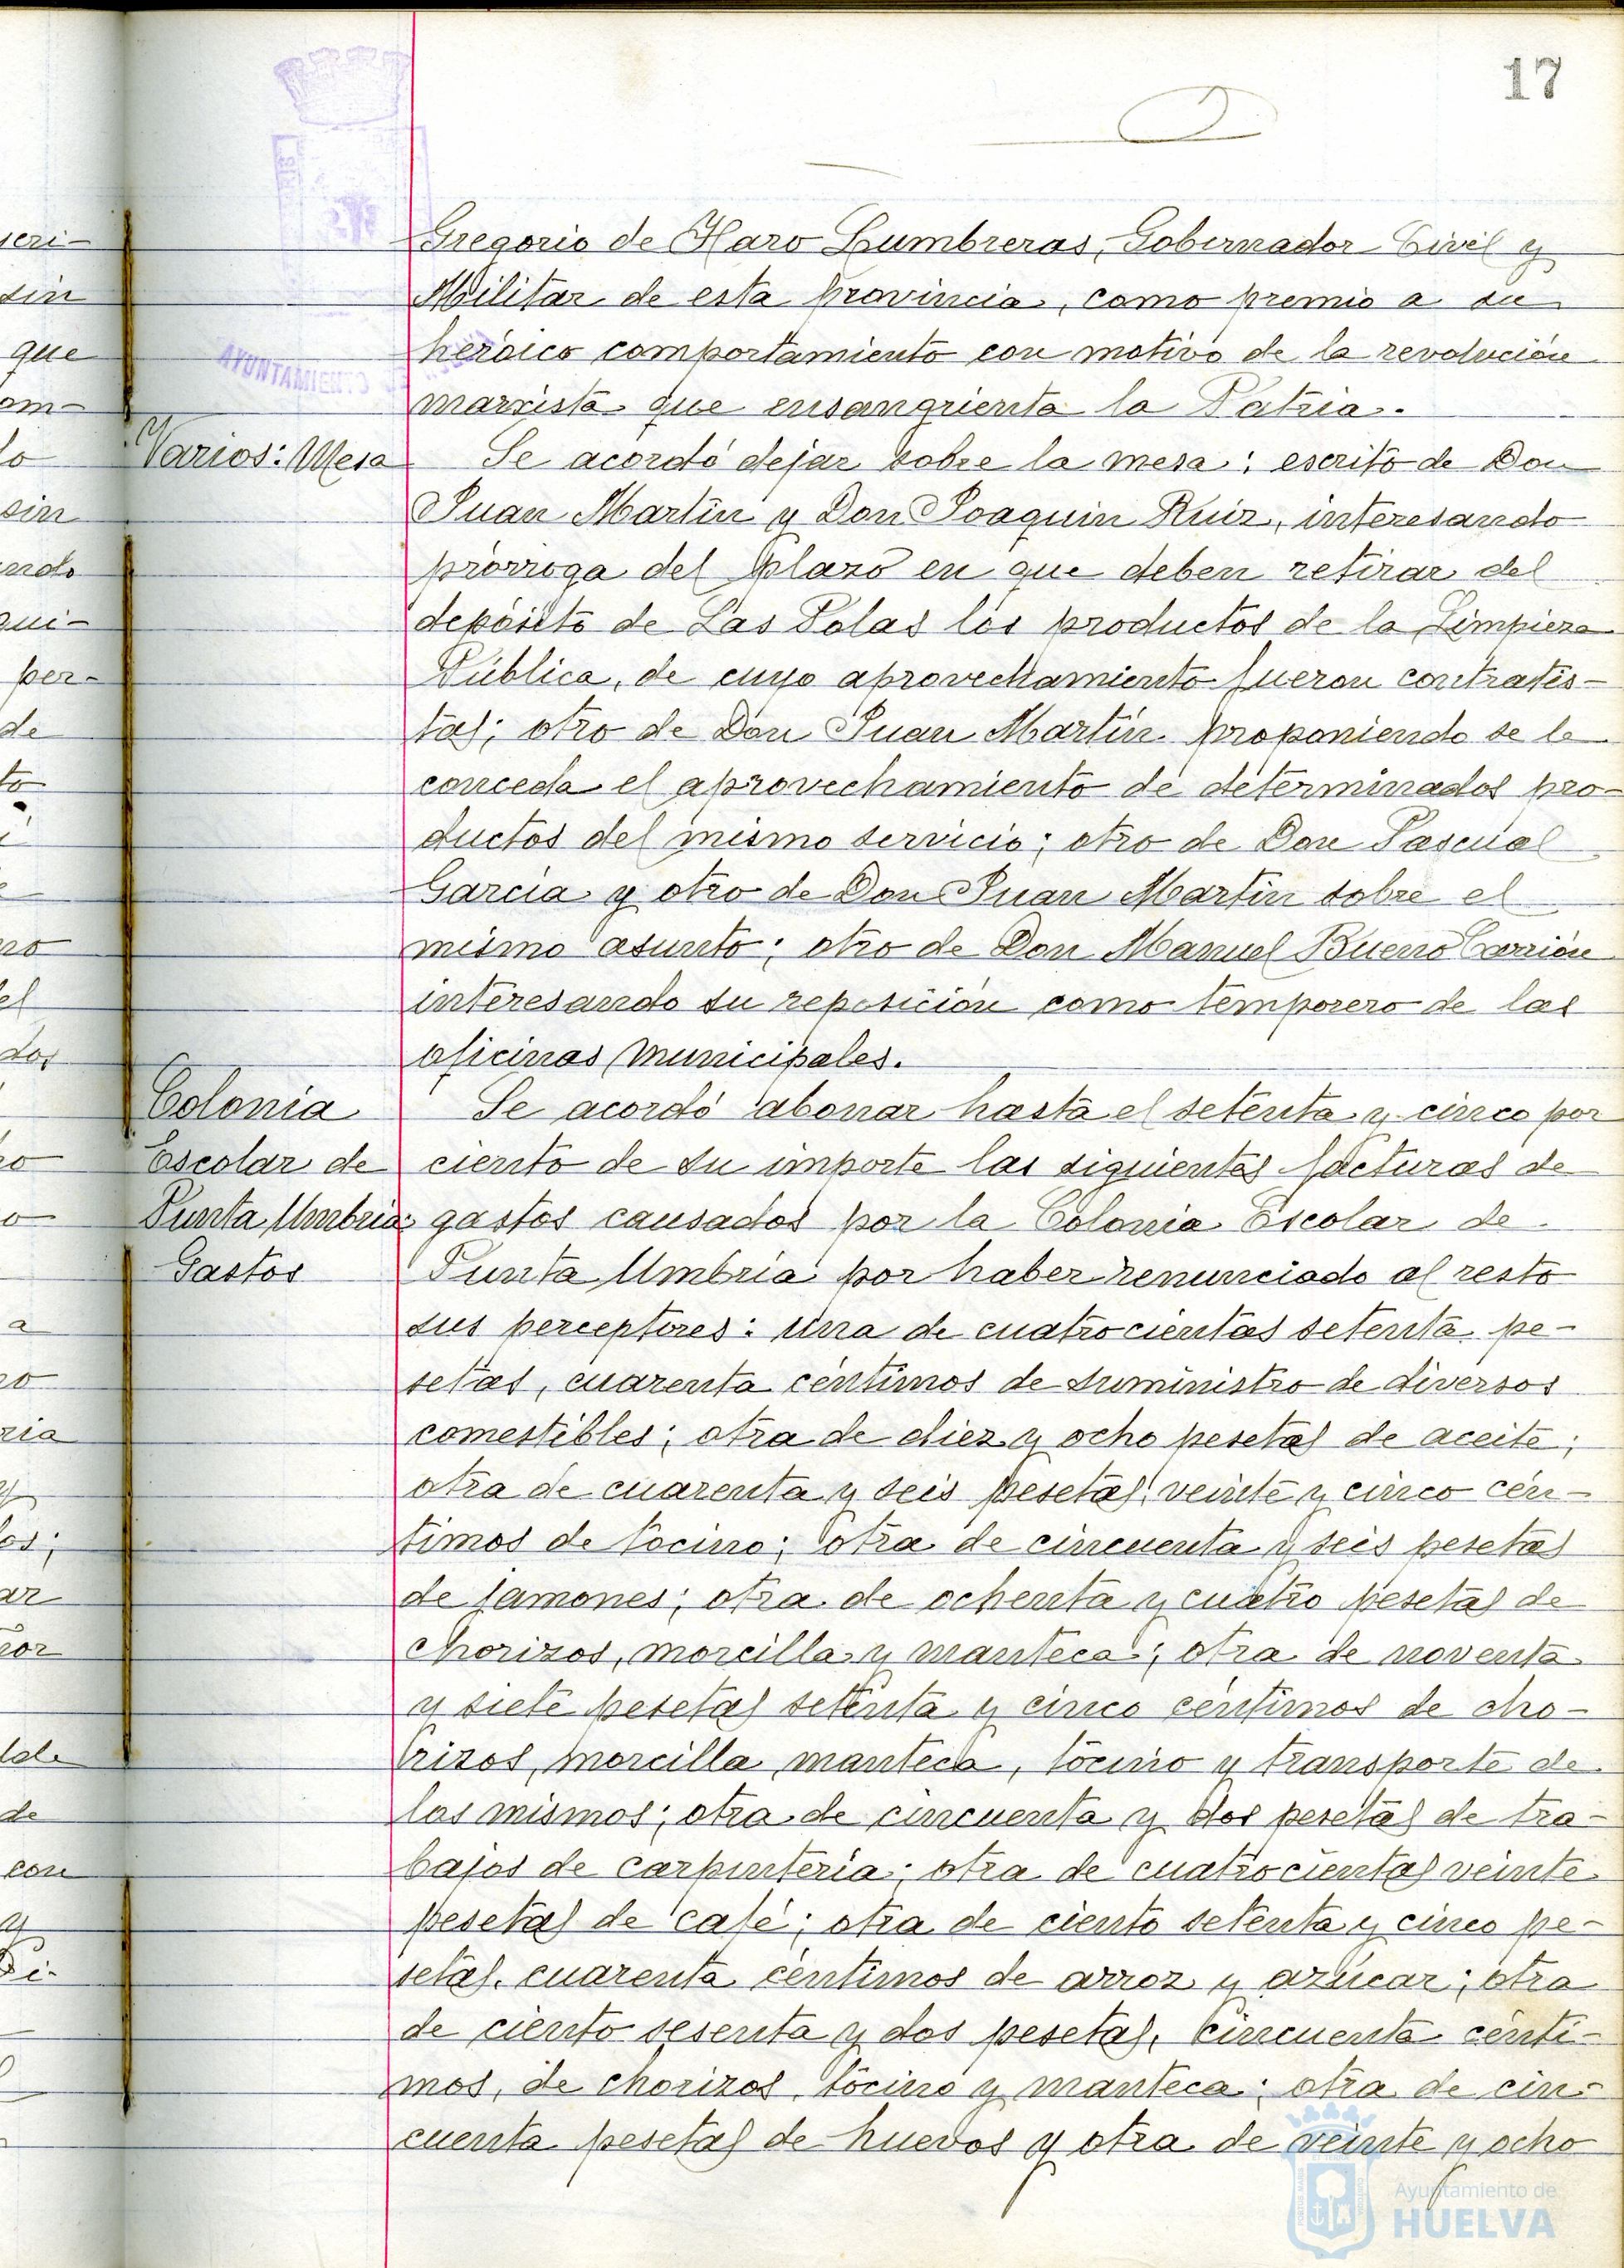 17
Gregorio de Haro Lumbreras, Gobernador Civil y
Militar de esta provincia, como premio a su
heróico comportamiento con motivo de la revolución
marxista que ensangrienta la Patria.
Varios: Mesa
Se acordó dejar sobre la mesa: escrito de Don
Juan Martín y Don Joaquin Ruiz, interesando
prórroga del plazo en que deben retirar del
depósito de Las Polas los productos de la Limpieza
Pública, de cuyo aprovechamiento fueron contratis-
tas; otro de Don Juan Martín proponiendo se le
conceda el aprovechamiento de determinados pro-
ductos del mismo servicio; otro de Don Pascual
García y otro de Don Juan Martín sobre el
mismo asunto; otro de Don Manuel Bueno Carrión
interesando su reposición como temporero de las
oficinas municipales.
Colonia
Escolar de
Punta Umbria:
Gastos
Se acordó abonar hasta el setenta y cinco por
ciento de su importe las siguientes facturas de
gastos causados por la Colonia Escolar de
Punta Umbría por haber renunciado al resto
sus perceptores: Una de cuatrocientas setenta pe-
setas, cuarenta céntimos de suministro de diversos
comestibles; otra de diez y ocho pesetas de aceite;
otra de cuarenta y seis pesetas, veinte y cinco cén-
timos de tocino; otra de cincuenta y seis pesetas
de jamones; otra de ochenta y cuatro pesetas de
chorizos, morcilla y manteca; otra de noventa
y siete pesetas setenta y cinco céntimos de cho-
rizos, morcilla, manteca, tocino y transporte de
los mismos; otra de cincuenta y dos pesetas de tra-
bajos de carpintería; otra de cuatrocientas veinte
pesetas de café; otra de ciento setenta y cinco pe-
setas, cuarenta céntimos de arroz y azúcar; otra
de ciento sesenta y dos pesetas, cincuenta cénti-
mos, de chorizos, tocino y manteca; otra de cin-
cuenta pesetas de huevos y otra de veinte y ocho
AYUNTAMIENTO DE
Ayuntamiento de
HUELVA
que
sin
per-
de
con